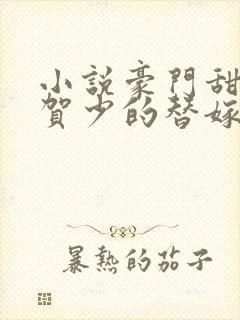 小說豪門甜
賀少的替嫁
暴熱的茄子